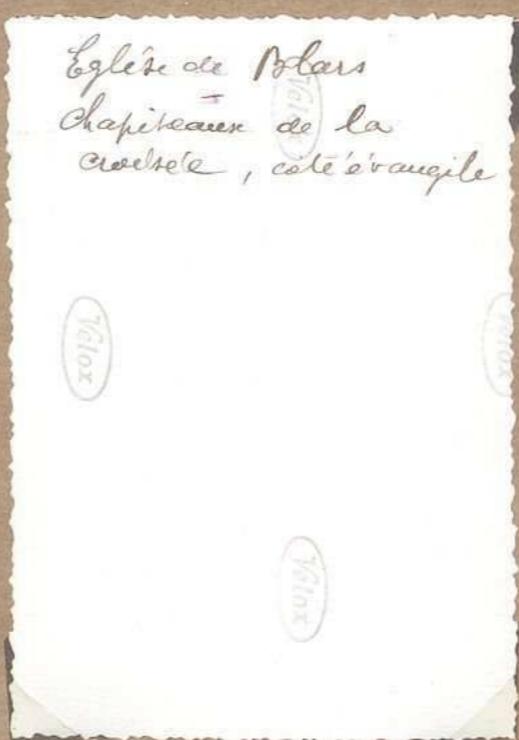 Eglise de Blars
Chapiteaux de la
croisée, côté évangile
Velox
Velox
Velox
Velox